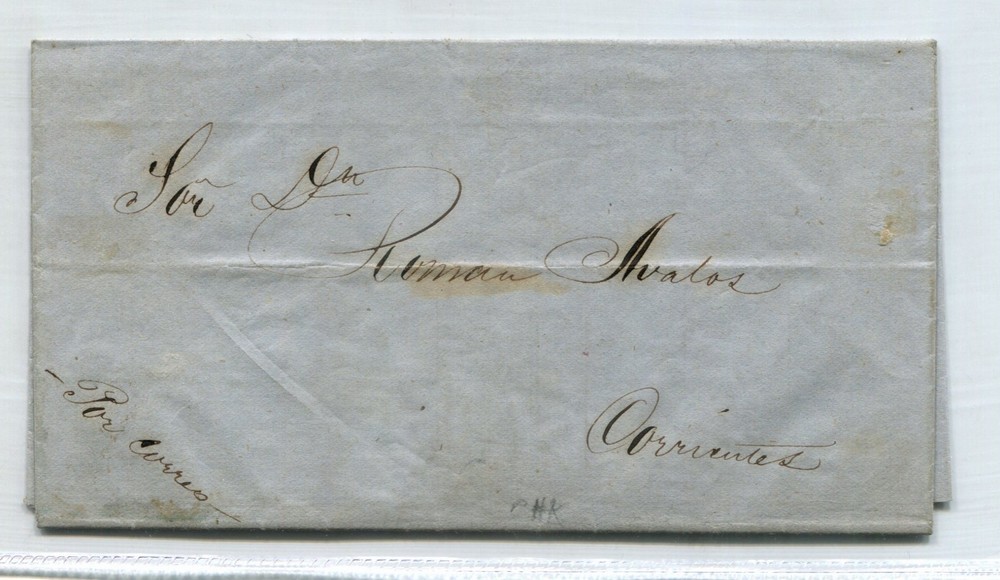 Sor̃ Dn
Roman Avalos
Corrientes
Por correo